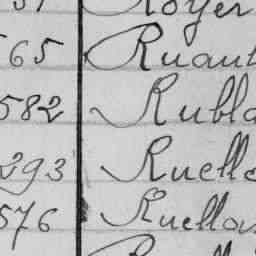 Royer
65 Ruaut
582 Rubla
293 Ruelle
576 Ruellan